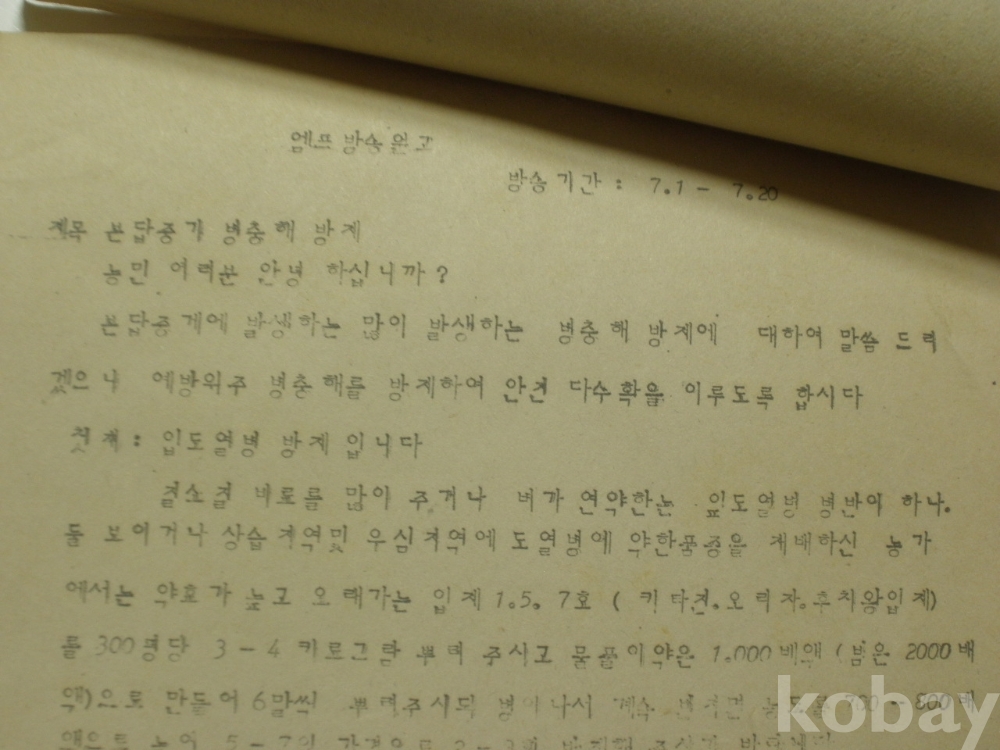 엠프방송원고
방송기간 : 7.1 - 7.20
제목 논답중기 병충해 방제
농민 여러분 안녕 하십니까?
논답중게에 발생하는 많이 발생하는 병충해 방제에 대하여 말씀 드리
겠으니 예방위주 병충해를 방제하여 안전 다수확을 이루도록 합시다
첫째 : 입도열병 방제 입니다
비료를 많이 주거나 벼가 연약한는 잎도열병 병반이 하나.
둘 보이거나 상습지역및 우심지역에 도열병에 약한품종을 재배하신 농가
에서는 약효가 높고 오래가는 입제 1.5.7호 ( 키타진.오리자.후치왕입제)
를 300평당 3-4 키로그람 뿌려 주시고 물풀이약은 1.000배액 (밤은 2000배
액)으로 만들어 6말씩 뿌려주시되 병이나서 계속 번지면 농도를 700-800배
액으로 높여 5-7일 간격으로 2-3회
kobay